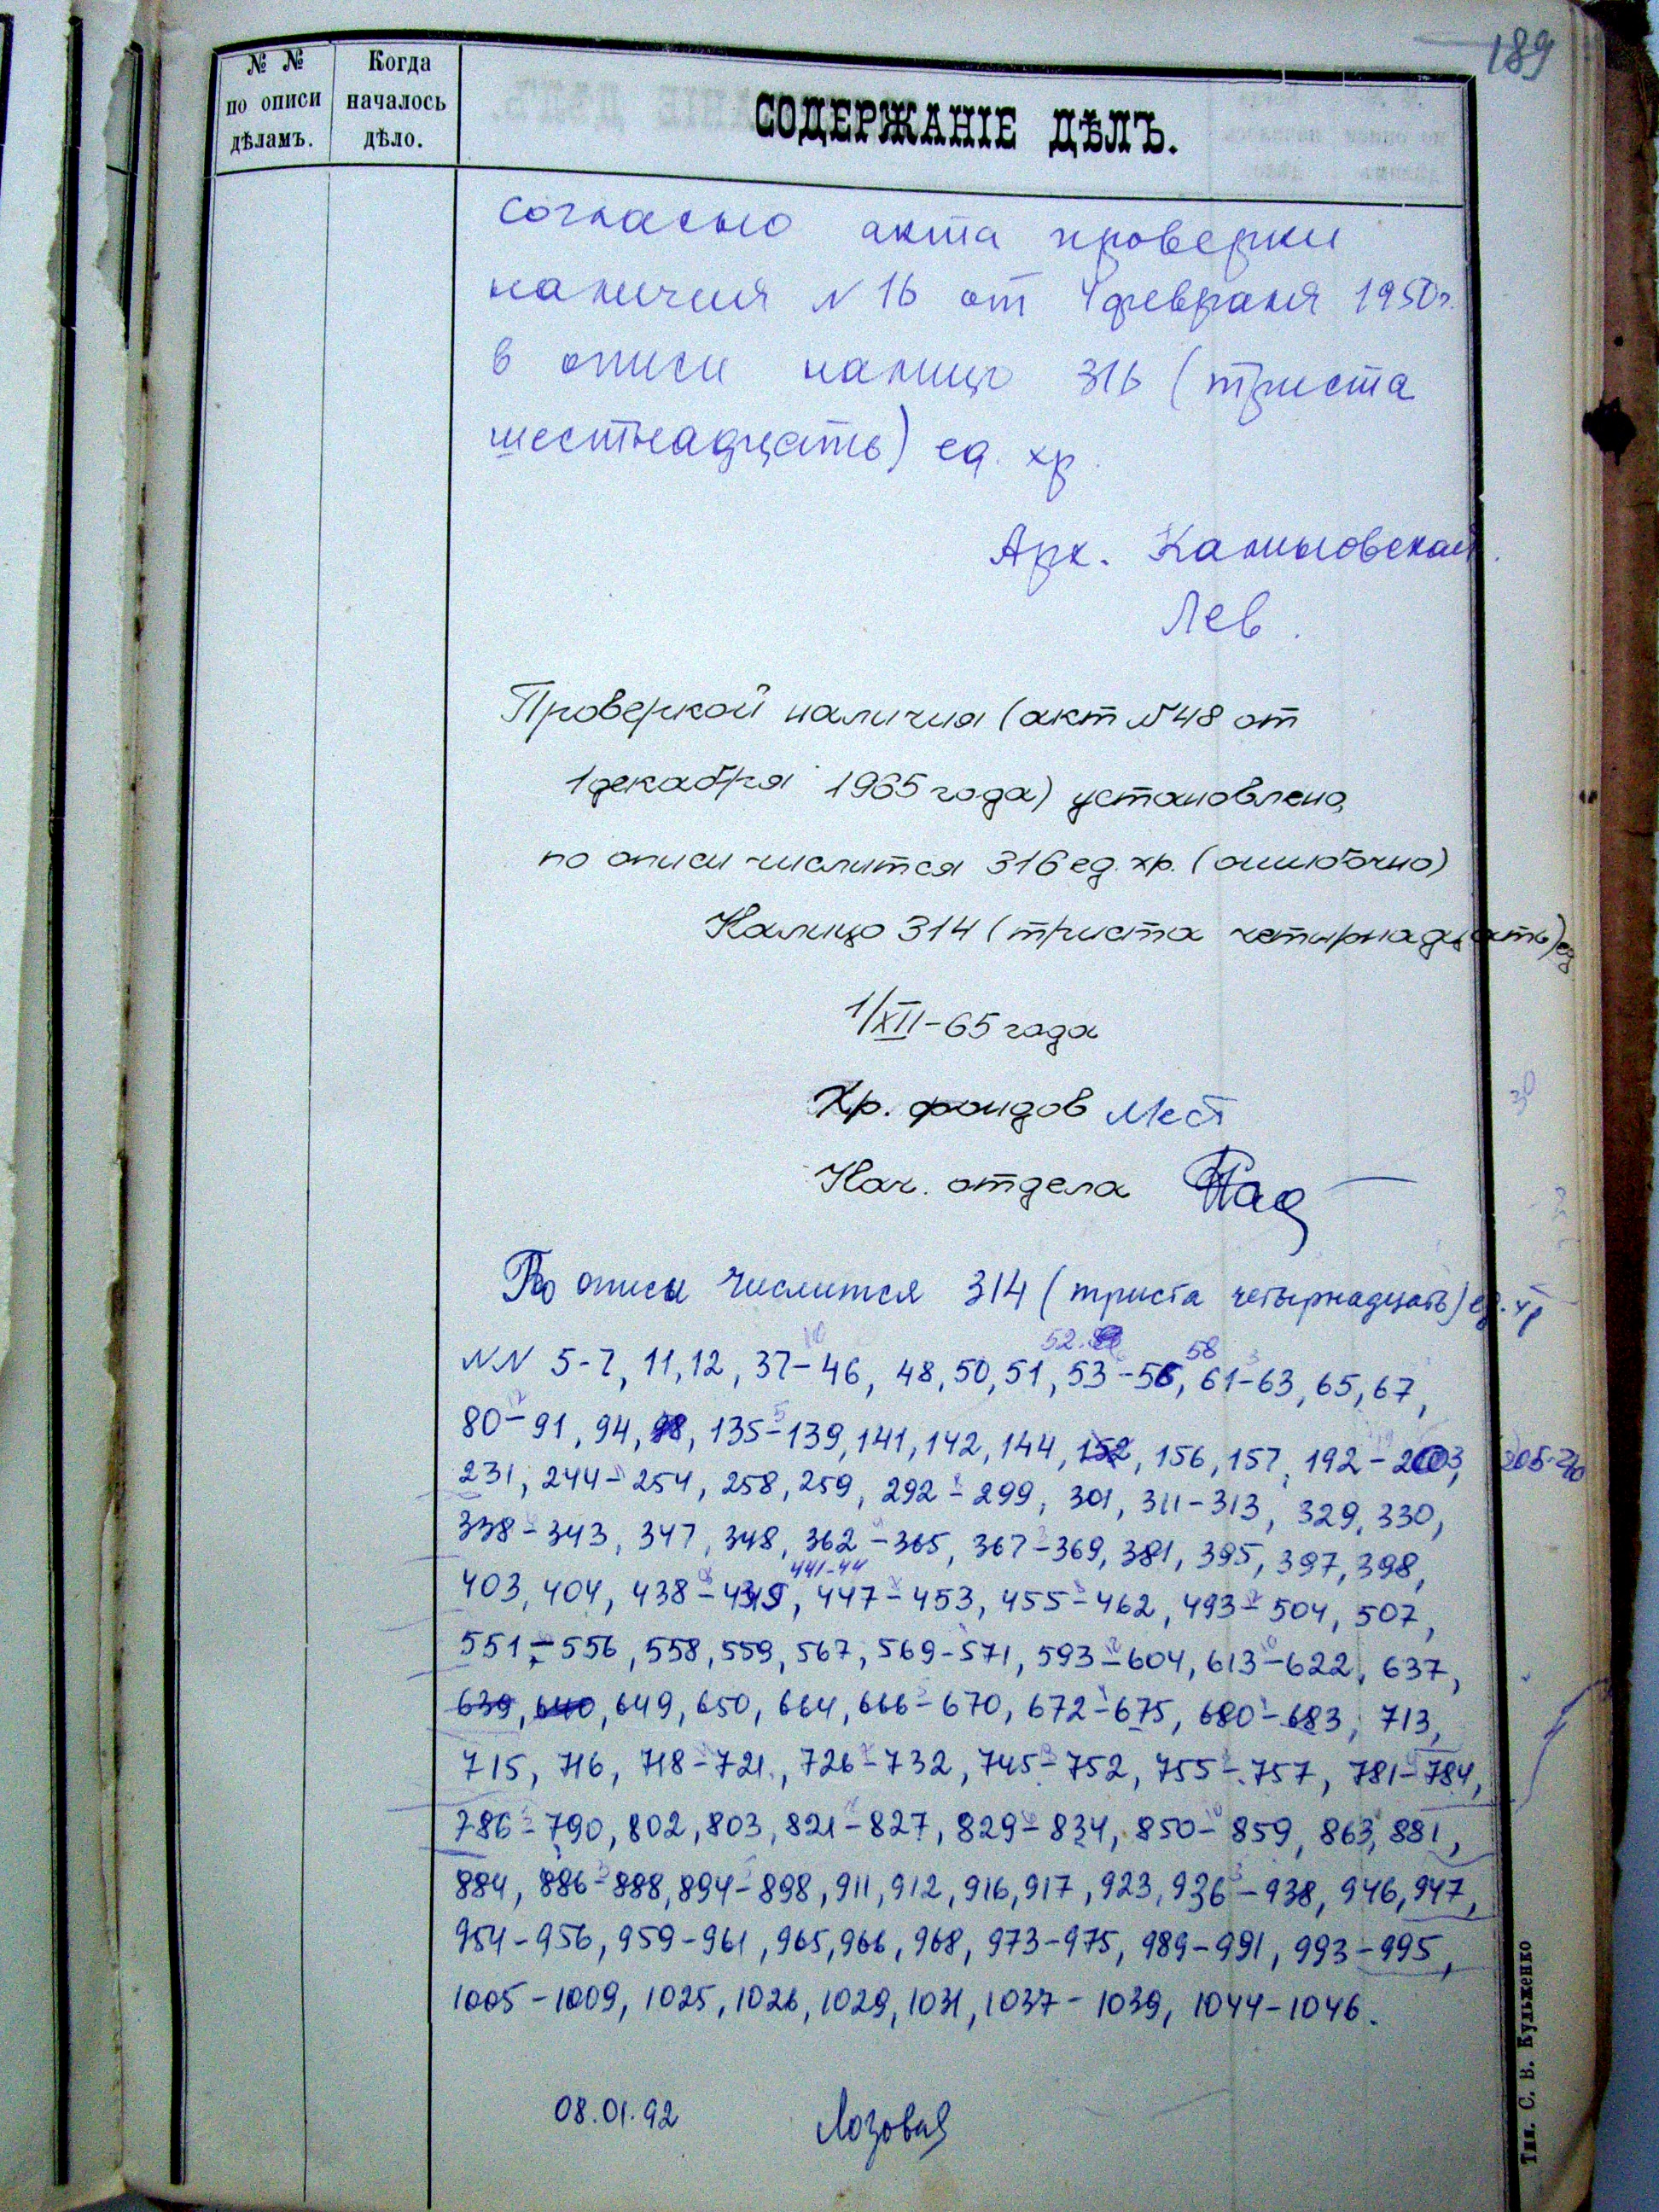 189
№ №
по описи
дѣламъ.
Когда
началось
дѣло.
СОДЕРЖАНІЕ ДѢЛЪ.
Согласно акта проверки
наличия N 16 от 4 февраля 1950г.
в описи налицо 316 (триста
шестнадцать) ед. хр.
Арх.
Лев.
Проверкой наличия (акт N 48 от
1 декабря 1965 года) установлено,
по описи числится 316 ед. хр. (ошибочно)
Налицо 314 (триста четырнадцать) ед
1/XII-65 года
Хр. фондов
Нач. отдела
По описи числится 314 (триста четырнадцать) ед. хр
52. 58
NN 5-7, 11, 12, 37-46, 48, 50, 51, 53-56, 61-63, 65, 67,
80-91, 94, 98, 135-139, 141, 142, 144, 152, 156, 157, 192-203,
231, 244-254, 258, 259, 292-299, 301, 311-313, 329, 330,
338-343, 347, 348, 362-365, 367-369, 381, 395, 397, 398,
441-44
403, 404, 438-439, 447-453, 455-462, 493-504, 507,
551-556, 558, 559, 567, 569-571, 593-604, 613-622, 637,
639, 640, 649, 650, 664, 666-670, 672-675, 680-683, 713,
715, 716, 718-721, 726-732, 745-752, 755-757, 781-784,
786-790, 802, 803, 821-827, 829-834, 850-859, 863, 881,
884, 886-888, 894-898, 911, 912, 916, 917, 923, 936-938, 946, 947,
954-956, 959-961, 965, 966, 968, 973-975, 989-991, 993-995,
1005-1009, 1025, 1026, 1029, 1031, 1037-1039, 1044-1046.
08.01.92 Лозовая
Тип. С. В. Кульженко